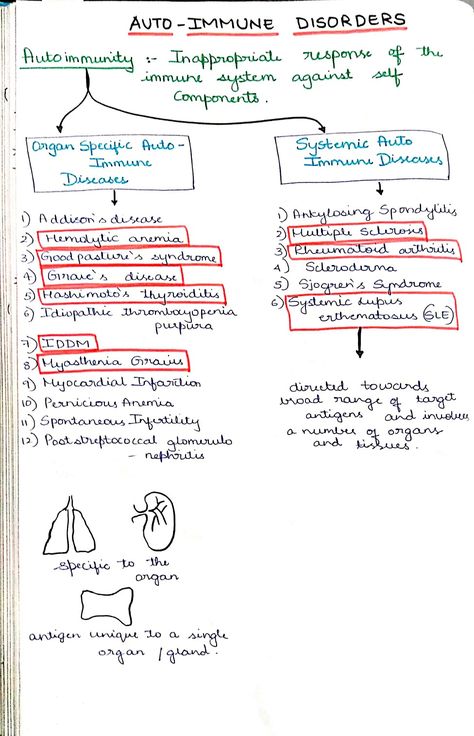 AUTO-IMMUNE DISORDERS
Autoimmunity :- Inappropriate response of the
immune system against self
Components.
Organ Specific Auto-
Immune
Diseases
1) Addison's disease
2) Hemolytic anemia
3) Goodpasture's syndrome
4) Grave's disease
5) Hashimoto's thyroiditis
6) Idiopathic thrombocyopenia
purpura
7) IDDM
8) Myasthenia Gravius
9) Myocardial Infarction
10) Pernicious Anemia
11) Spontaneous Infertility
12) Poststreptococcal glomerulo
- nephritis
specific to the
organ
antigen unique to a single
organ / gland.
Systemic Auto
Immune Diseases
1) Ankylosing Spondylitis
2) Multiple Sclerosis
3) Rheumatoid arthritis
4) Scleroderma
5) Sjogren's Syndrome
6) Systemic Lupus
erthematosus (SLE)
directed towards
broad range of target
antigens and involves
a number of organs
and tissues.